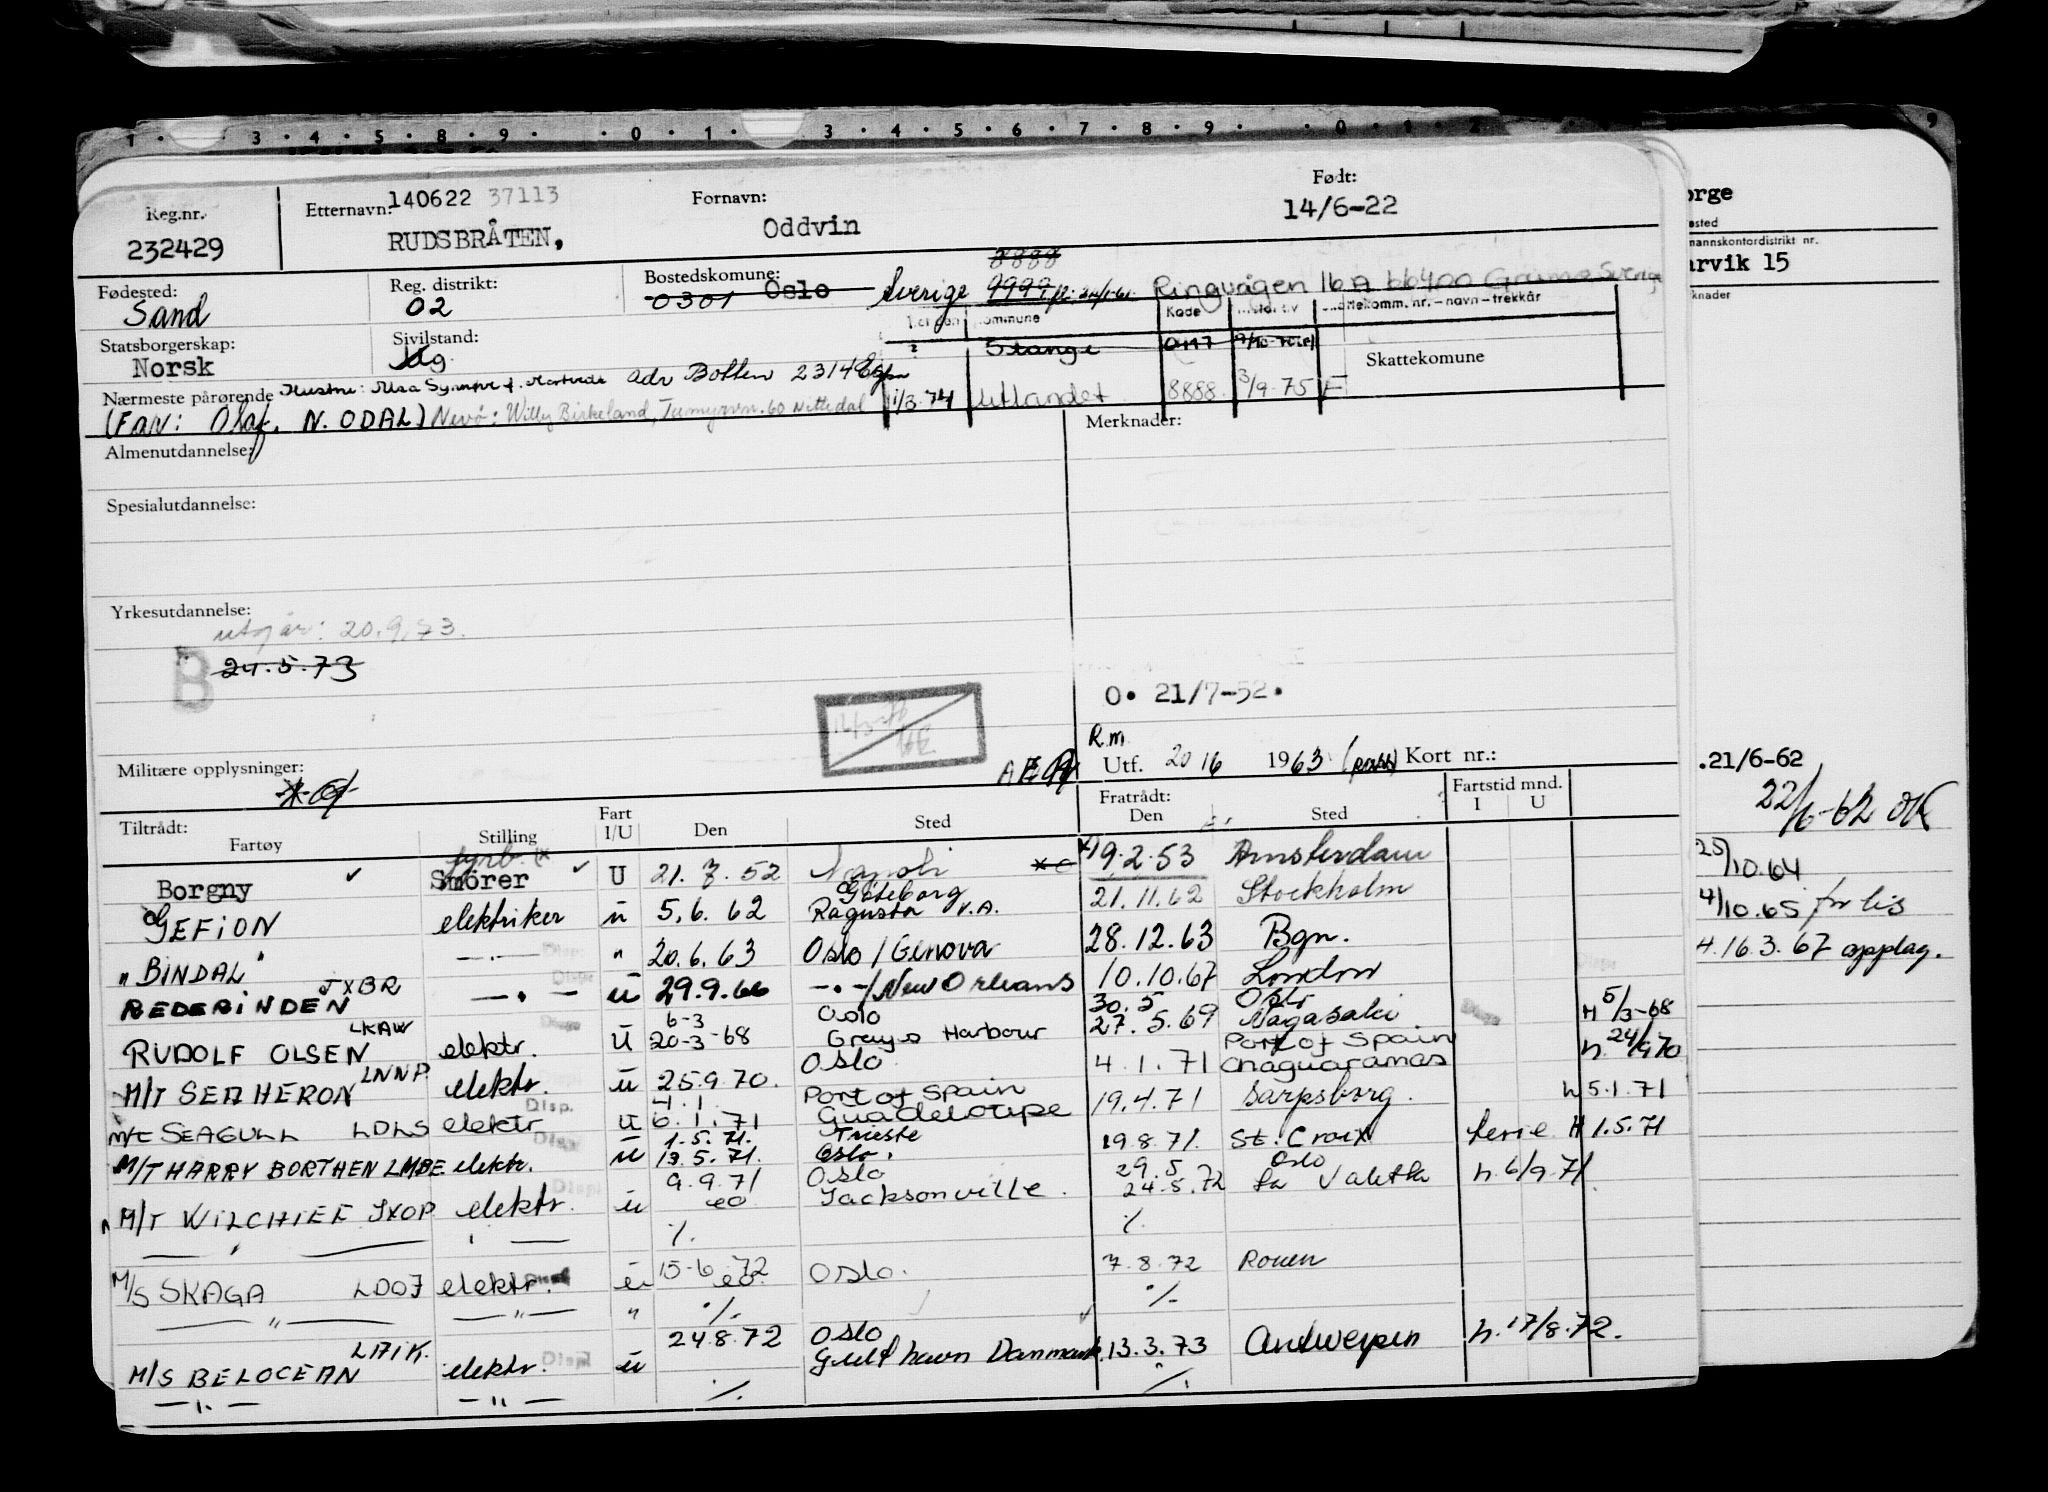 1 3 4 5 8 9 0 1 3 4 5 6 7 8 9 0 1 2 9
Reg.nr. Etternavn: 140622 37113 Fornavn: Født:
232429 RUDSBRÅTEN, Oddvin 14/6-22
Fødested: Reg. distrikt: Bostedskomune: 8888
Sand 02 0301 Oslo Sverige 9999 Ringvägen 16A 66400 Grums Sverige
Statsborgerskap: Sivilstand: kommune Kode
Norsk Ug. Stange 0417 Skattekomune
Nærmeste pårørende Hustru: adr Botten 2314 1/3.74 Utlandet 8888 3/9-75 F
(Far: Olaf, N. ODAL) Nevø: Willy Birkeland, 60 Nittedal
Almenutdannelse: Merknader:
Spesialutdannelse:
Yrkesutdannelse:
utgår: 20.9.73.
B 24.5.73
O. 21/7-52.
R.m.
Militære opplysninger: Utf. 20/6 1963 (pass) Kort nr.:
Tiltrådt: Fratrådt: Fartstid mnd.
Fartøy Stilling Fart I/U Den Sted Den Sted I U
Borgny fyrb. Smörer U 21.7.52 19.2.53 Amsterdam
GEFION elektriker u 5.6.62 Göteborg Ragusta V.A. 21.11.62 Stockholm
"BINDAL" — " — " 20.6.63 Oslo / Genova 28.12.63 Bgn.
REDERINDEN JXBR — " — u 29.9.66 — " — / New Orleans 10.10.67 London
RUDOLF OLSEN LKAW elektr. U 6-3 20-3-68 Oslo Grays Harbour 30.5 27.5.69 Oslo Nagasaki H 5/3-68
M/T SEA HERON LNNP elektr. u 25.9.70. Oslo 4.1.71 Port of Spain Chaguaramas h. 24/9 70
M/T SEAGULL LDLS elektr Disp. u 4.1. 6.1.71 Port of Spain Guadeloupe 19.4.71 Sarpsborg. h 5.1.71
M/T HARRY BORTHEN LMBE elektr. u 1.5.71. 13.5.71. Trieste Oslo. 19.8.71. St. Croix ferie H 1.5.71
M/T WILCHIEF JXOP elektr. u 9.9.71 eo Oslo Jacksonville. 29.5 24.5.72 Oslo La Valetta h. 6/9.71
— " — " — ./. ./.
M/S SKAGA LDOJ elektr. u 15-6 72 eo. Oslo. 7.8.72 Rouen
— " — — " — " ./. ./.
M/S BELOCEAN LAIK. elektr. u 24.8.72 Oslo havn Danmark 13.3.73 Antwerpen h. 17/8.72.
— " — — " — ./. ./.
orge
sted
mannskontordistrikt nr.
arvik 15
knader
.21/6-62
22/6-62 OK
25/10.64
4/10.65
H. 16.3.67 opplag.